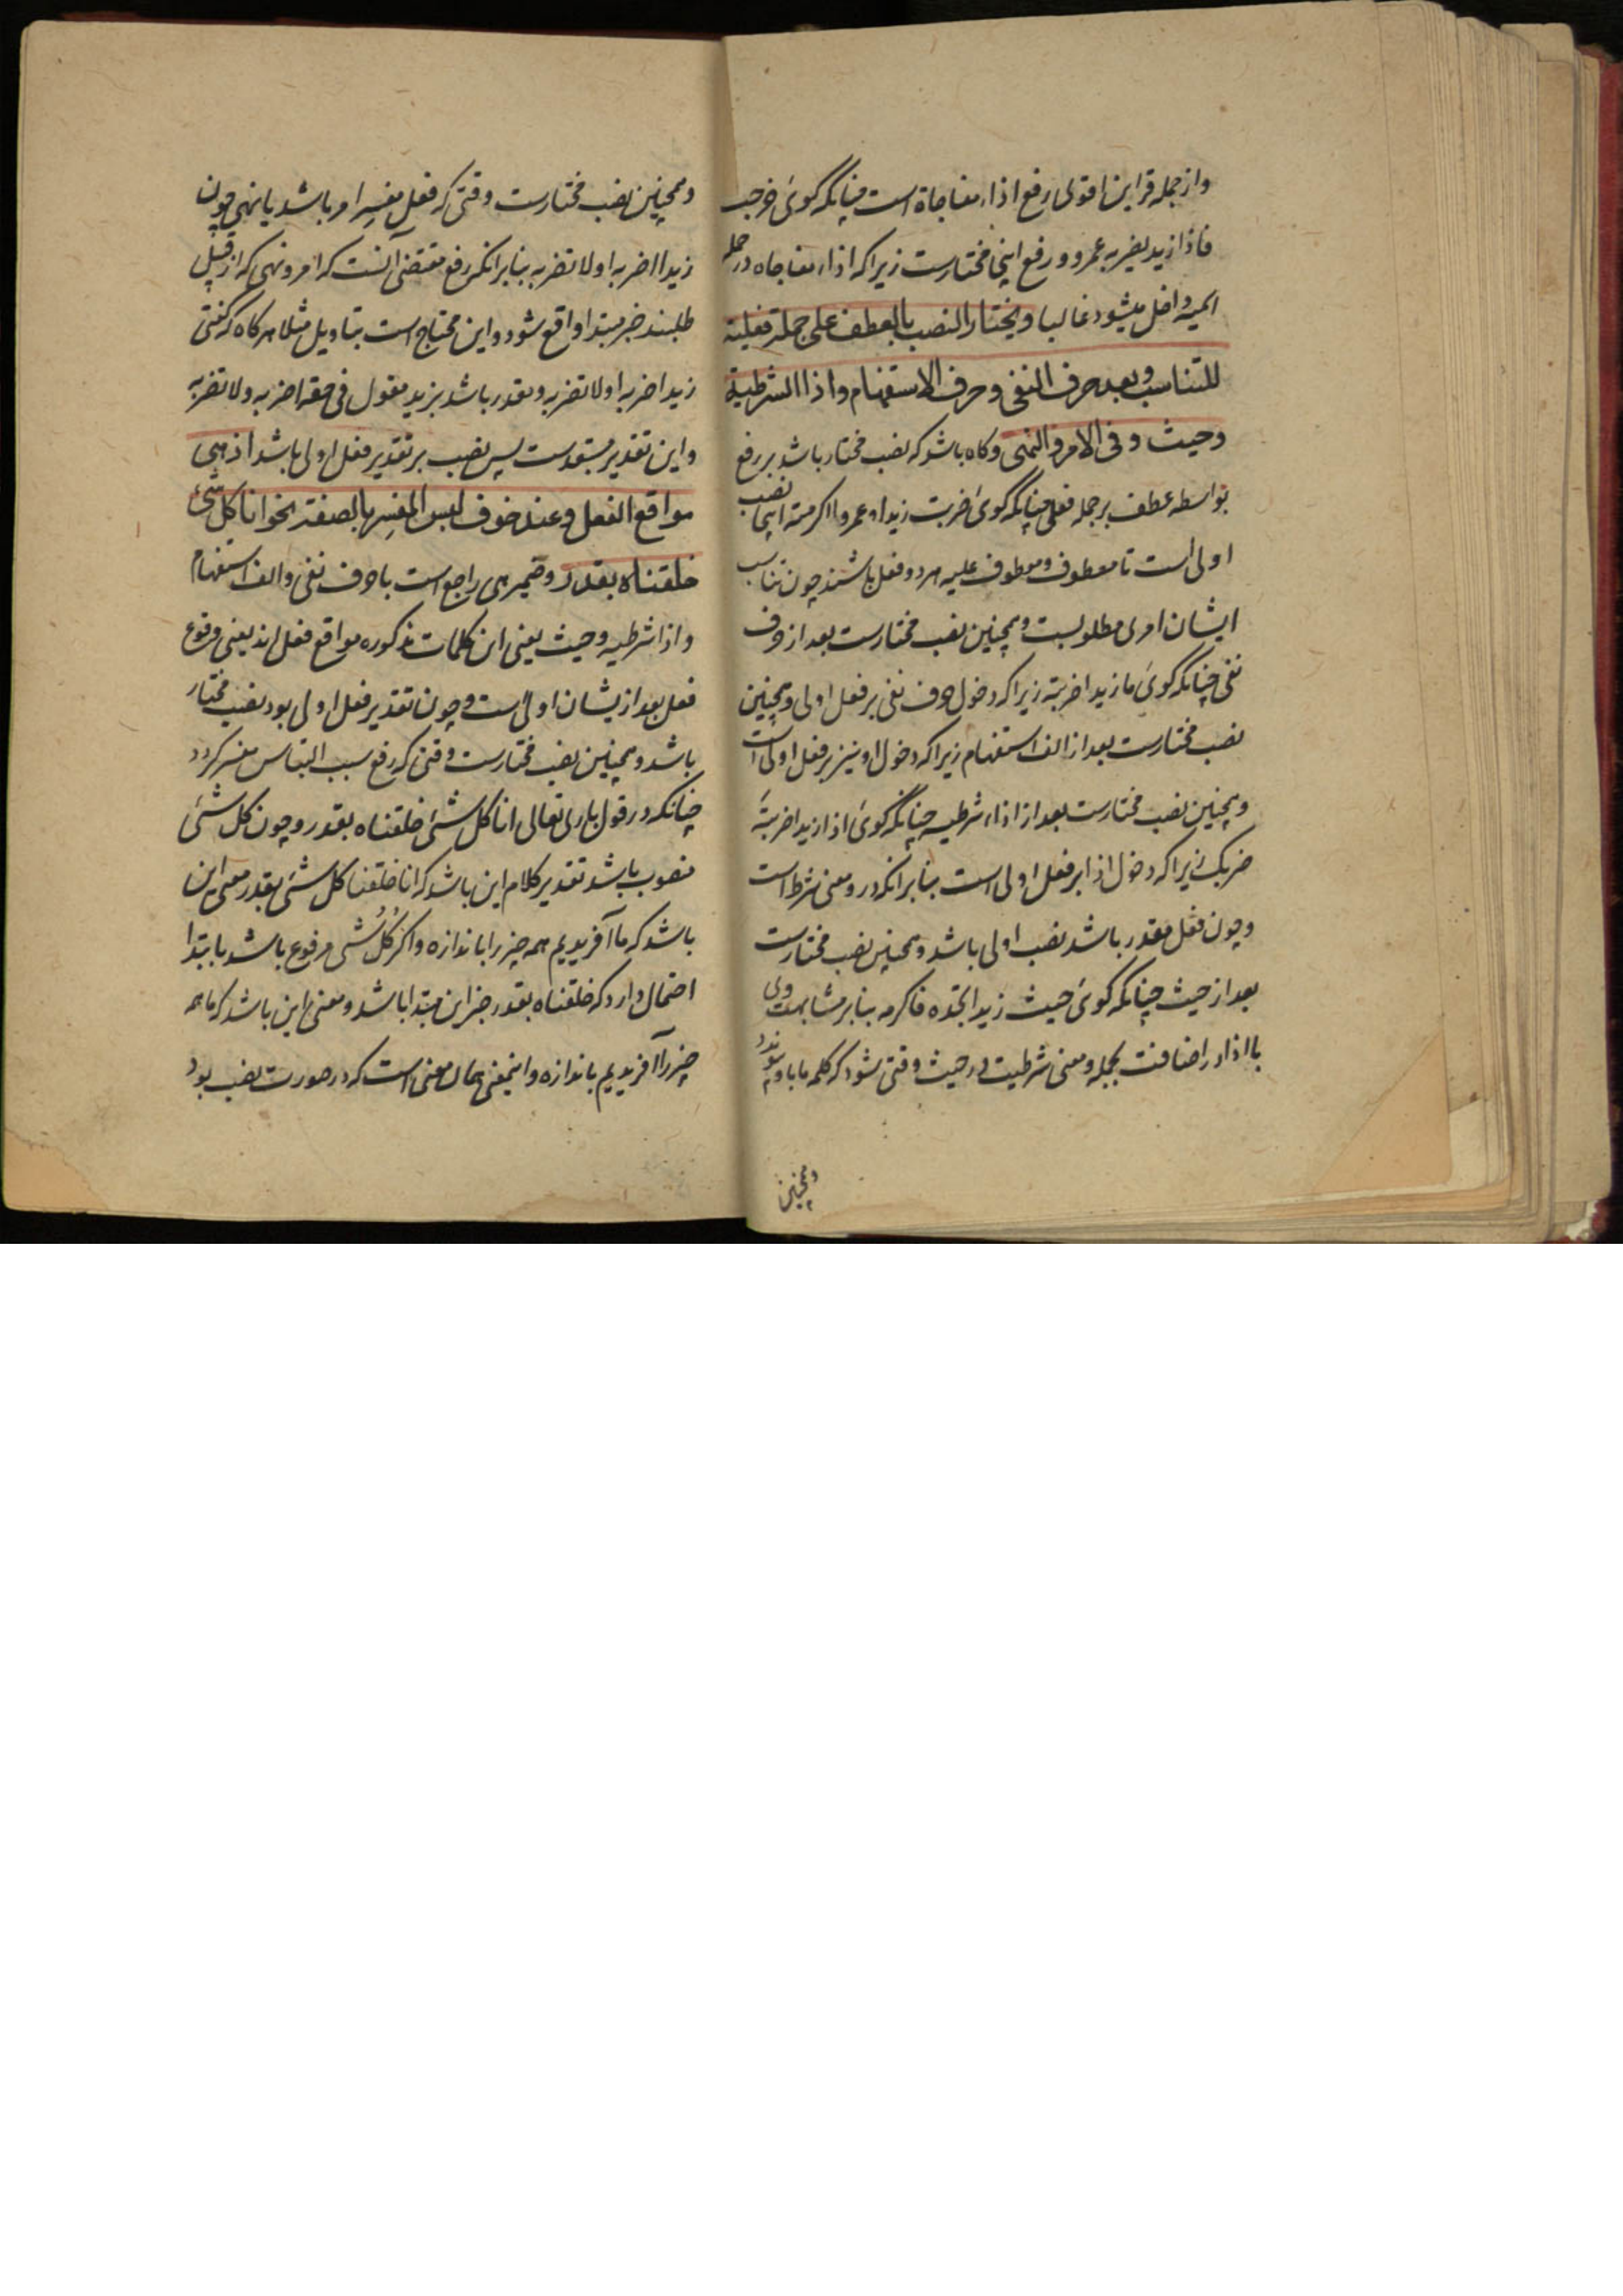 واز جمله قراین اقوی رفع اذاء مفاجاة است چنانکه گوئ خرجت
فاذا زید یضربه عمرو ورفع اینجا مختارست زیراکه اذاء مفاجاه در جمله
اسمیه داخل میشود غالبا ویختار النصب بالعطف علی جملة فعلیة
للتناسب وبعد حرف النفی وحرف الاستفهام واذا الشرطیة
وحیث وفی الامر والنهی وکاه باشد که نصب مختار باشد بر رفع
بواسطه عطف بر جمله فعلی چنانکه گوئ ضربت زیدا وعمروا اکرمته اینجا نصب
اولی است تا معطوف ومعطوف علیه هر دو فعل باشند چون تناسب
ایشان امری مطلوبست وهمچنین نصب مختارست بعد از حرف
نفی چنانکه گوئ ما زیدا ضربته زیراکه دخول حرف نفی بر فعل اولی وهمچنین
نصب مختارست بعد از الف استفهام زیراکه دخول او نیز بر فعل اولی است
وهمچنین نصب مختارست بعد از اذاء شرطیه چنانکه گوئ اذا زیدا ضربتهٗ
ضربک زیراکه دخول اذا بر فعل اولی است بنابر انکه درو معنی شرط است
وچون فعل مقدر باشد نصب اولی باشد وهمچنین نصب مختارست
بعد از حیث چنانکه گوئ حیث زیدا تجده فاکرمه بنابر مشابهت وی
با اذا در اضافت بجمله ومعنی شرطیت در حیث وقتی شود که کلمه ما با او پیوندد
وهمچنین
وهمچنین نصب مختارست وقتی که فعل مفسر امر باشد یا نهی چون
زیدا اضربه او لا تضربه بنابر انکه رفع مقتضی آنست که امر ونهی که از قبیل
طلبند خبر مبتدا واقع شود واین محتاج است بتاویل مثلا هرکاه که گفتی
زید اضربه او لا تضربه ومقدر باشد بزید مقول فی حقه اضربه ولا تضربه
واین تقدیر مستبعدست پس نصب بر تقدیر فعل اولی باشد اذ هی
مواقع الفعل وعند خوف لبس المفسر بالصفة نحو انا کل شیء
خلقناه بقدر وضمیر هی راجع است با حرف نفی والف استفهام
واذا شرطیه وحیث یعنی این کلمات مذکوره مواقع فعل اند یعنی وقوع
فعل بعد ازیشان اولی است وچون تقدیر فعل اولی بود نصب مختار
باشد وهمچنین نصب مختارست وقتی که رفع سبب التباس مفسر کردد
چنانکه در قول باری تعالی انا کل شیٔ خلقناه بقدر وچون کل شیٔ
منصوب باشد تقدیر کلام این باشد که انا خلقنا کل شیٔ بقدر معنی این
باشد که ما آفریدیم همه چیز را باندازه واکر کُلُّ شی مرفوع باشد بابتدا
احتمال دارد که خلقناه بقدر خبر این مبتدا باشد ومعنی این باشد که ما همه
چیز را آفریدیم باندازه واینمعنی همان معنی است که در صورت نصب بود